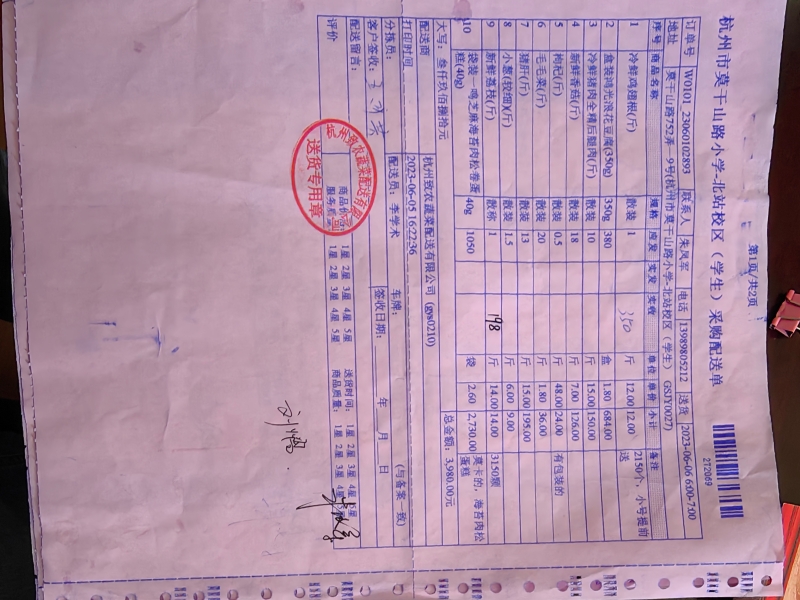 第1页/共2页
杭州市莫干山路小学-北站校区（学生）采购配送单
272069
订单号 W0101_23060102893 联系人 朱凤军 电话 13989805212 送货 2023-06-06 6:00-7:00
地址 莫干山路752弄-9号(杭州市莫干山路小学-北站校区（学生） GSJY0027)
序号 商品名称 规格 应发 实发 实收 单位 单价 小计 备注
1 冷鲜鸡翅根(斤) 散装 1 350 斤 12.00 12.00 2150个，小号提前送
2 盒装鸿光浪花豆腐(350g) 350g 380 盒 1.80 684.00
3 冷鲜猪肉全精后腿肉(斤) 散装 10 斤 15.00 150.00
4 新鲜香菇(斤) 散装 18 斤 7.00 126.00
5 枸杞(斤) 散装 0.5 斤 48.00 24.00 有包装的
6 毛毛菜(斤) 散装 20 斤 1.80 36.00
7 猪肝(斤) 散装 13 斤 15.00 195.00
8 小葱(较细)(斤) 散装 1.5 斤 6.00 9.00
9 新鲜荔枝(斤) 散称 1 198 斤 14.00 14.00 3150颗
10 袋装一鸣芝麻海苔肉松卷蛋糕(40g) 40g 1050 袋 2.60 2,730.00 莫卡的，海苔肉松蛋糕
大写：叁仟玖佰捌拾元 总金额：3,980.00元
配送商 杭州致农蔬菜配送有限公司 (gys0210)
打印时间 2023-06-05 16:22:36
分拣员： 配送员：李学术 车牌： (与备案一致)
客户签收： 签收日期： 年 月 日
配送留言：
评价 商品价 1星 2星 3星 4星 5星 送货时间： 1星 2星 3星 4星
服务质 1星 2星 3星 4星 5星 商品质量： 1星 2星 3星 4星
杭州致农蔬菜配送有限公司
送货专用章